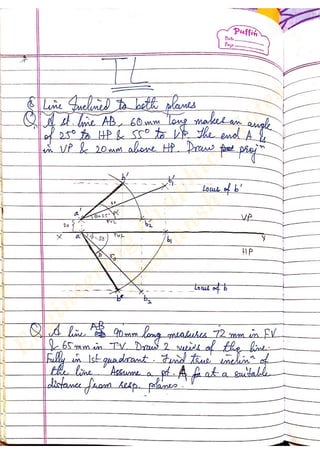 Puffin
Date
Page
TL
Line Inclined to both planes
Q. A st. line AB, 60mm long makes an angle
of 25° to HP & 55° to VP. The end A is
in VP & 20mm above HP. Draw projⁿ
b' b'₁
Locus of b'
a' b'₂
VP
20
X a b₁ Y
HP
b b₂
Locus of b
Q. A line AB 90mm long measures 72mm in FV
& 65mm in TV. Draw 2 views of the line
Fully in 1st quadrant. Find true inclinⁿ of
the line. Assume a pt. A at a suitable
distance from resp. planes.